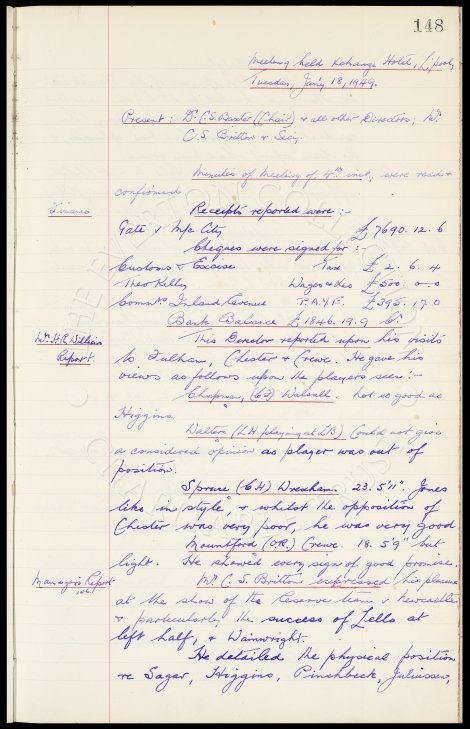 148
Meeting held Exchange Hotel, L'pool,
Tuesday, Jan'y 18, 1949.
Present: Dr. C.S. Baxter (Chair) & all other Directors; Mr.
C.S. Britton & Secy.
Minutes of Meeting of 4th inst, were read &
confirmed
Finance
Receipts reported were :-
Gate v M/c City £7690. 12. 6
Cheques were signed for :-
Customs & Excise Tax £2. 6. 4
Theo Kelly Wages & Exes £500. 0. 0
Commrs. Inland Revenue P.A.Y.E. £395. 17 0
Bank Balance £1846. 19. 9 Cr.
Mr. H.R. Williams
Report.
This Director reported upon his visits
to Fulham, Chester & Crewe. He gave his
views as follows upon the players seen :-
Chapman, (CF) Walsall. Not as good as
Higgins
Walton (LH playing at LB) Could not give
a considered opinion as player was out of
position.
Spruce (CH) Wrexham. 23. 5'11". Jones
like in style, & whilst the opposition of
Chester was very poor, he was very good
Mountford (O.R.) Crewe. 18. 5'9" but
light. He showed every sign of good promise.
Manager's Report
Mr. C.S. Britton expressed his pleasure
at the show of the Reserve team v Newcastle
& particularly the success of Lello at
left half, & Wainwright.
He detailed the physical position
re Sagar, Higgins, Pinchbeck, Juliussen,